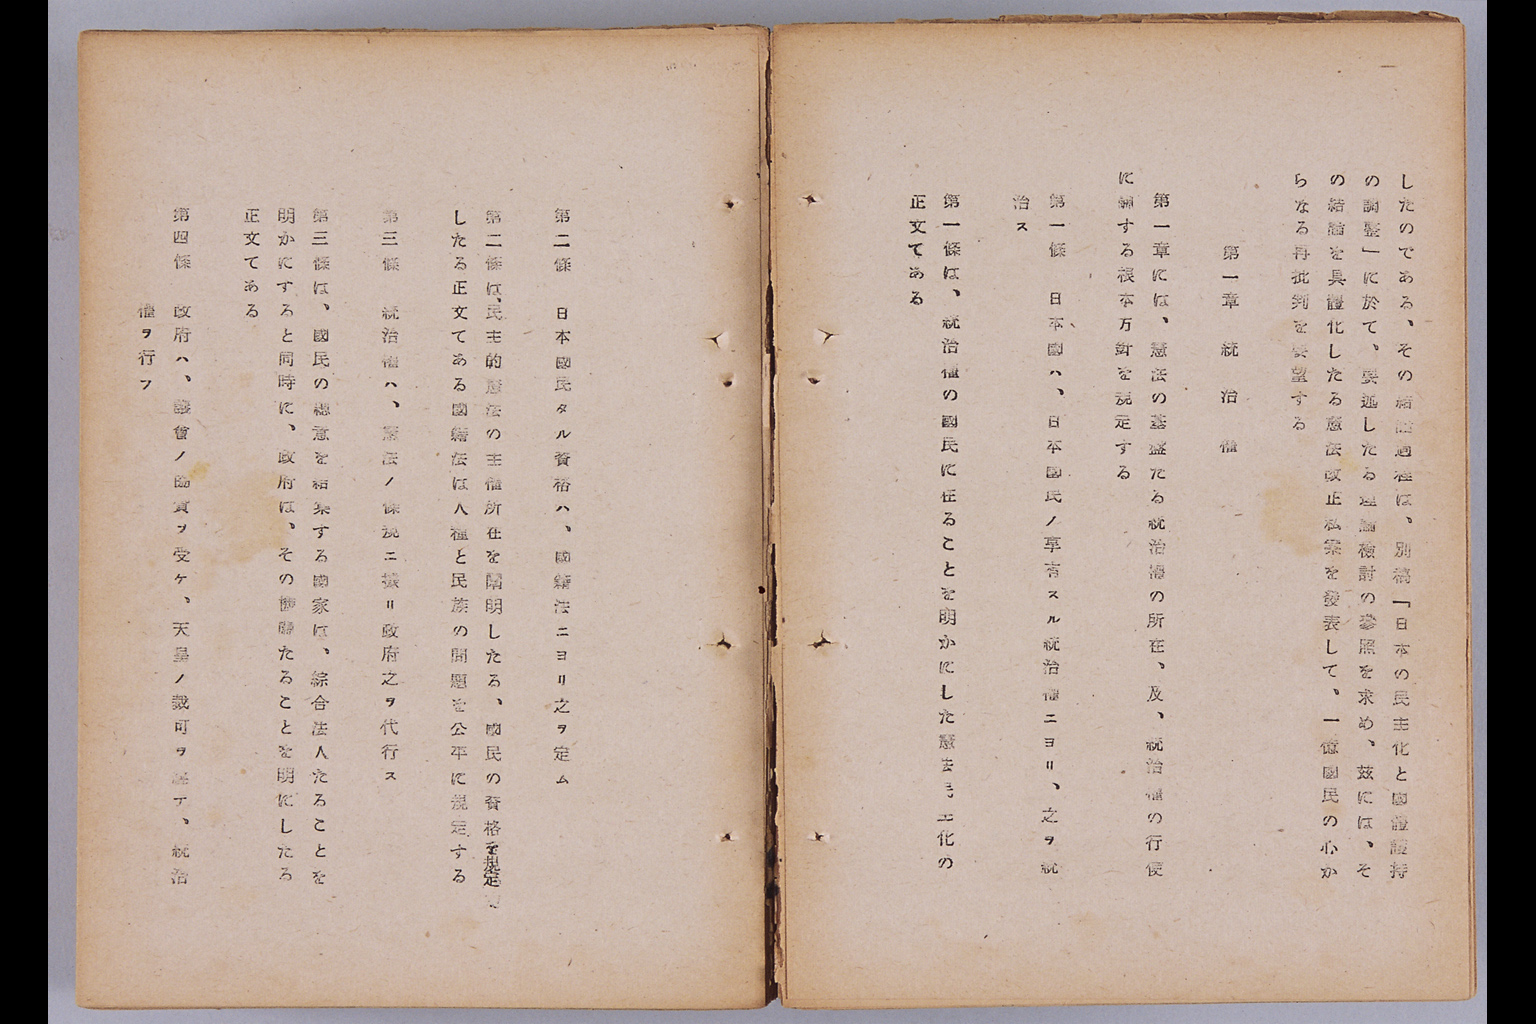 したのである、その結論過程は、別稿「日本の民主化と國體護持
の調整」に於て、要述したる理論檢討の參照を求め、茲には、そ
の結論を具體化したる憲法改正私案を發表して、一億國民の心か
らなる再批判を要望する
第一章 統治權
第一章には、憲法の基盤たる統治權の所在、及、統治權の行使
に關する根本方針を規定する
第一條 日本國ハ、日本國民ノ享有スル統治權ニヨリ、之ヲ統
治ス
第一條は、統治權の國民に在ることを明かにした憲法民主化の
正文てある
第二條 日本國民タル資格ハ、國籍法ニヨリ之ヲ定ム
第二條は、民主的憲法の主權所在を闡明したる、國民の資格を規定
した る正文てある國籍法は人種と民族の問題を公平に規定する
第三條 統治權ハ、憲法ノ條規ニ據リ政府之ヲ代行ス
第三條は、國民の總意を結集する國家は、綜合法人たることを
明かにすると同時に、政府は、その機關たることを明にしたる
正文てある
第四條 政府ハ、議會ノ協賛ヲ受ケ、天皇ノ裁可ヲ經テ、統治
權ヲ行フ